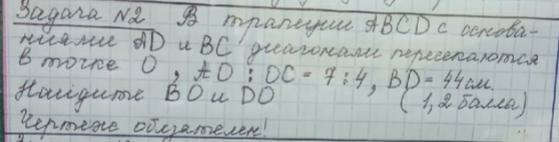 Задача №2 В трапеции ABCD с основа-
ниями AD и BC диагонали пересекаются
в точке O, AO : OC = 7 : 4, BD = 44 см.
Найдите BO и DO (1,2 балла)
Чертеж обязателен!